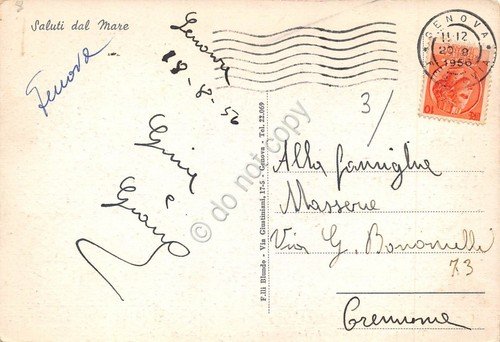 8
Saluti dal Mare
Genova
Genova
18-8-56
Gina
e
F.lli Biundo - Via Giustiniani, 17-5 - Genova - Tel. 22.069
do not copy
GENOVA
11-12
1956
3/
10
Alla famiglia
Masserie
Via G. Bonomelli
73
Cremona